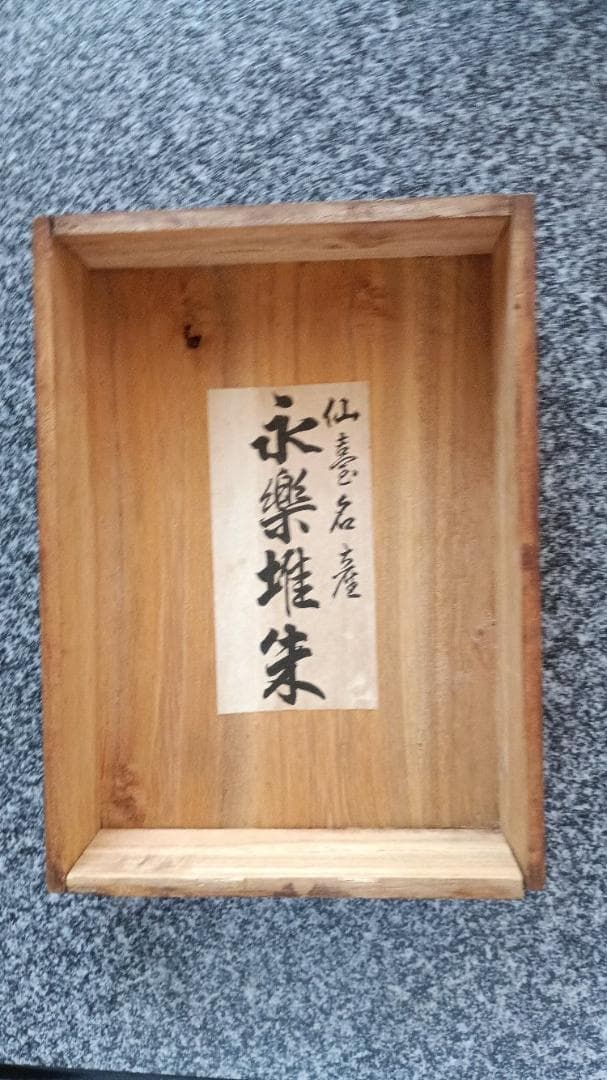 仙臺名産
永樂堆朱